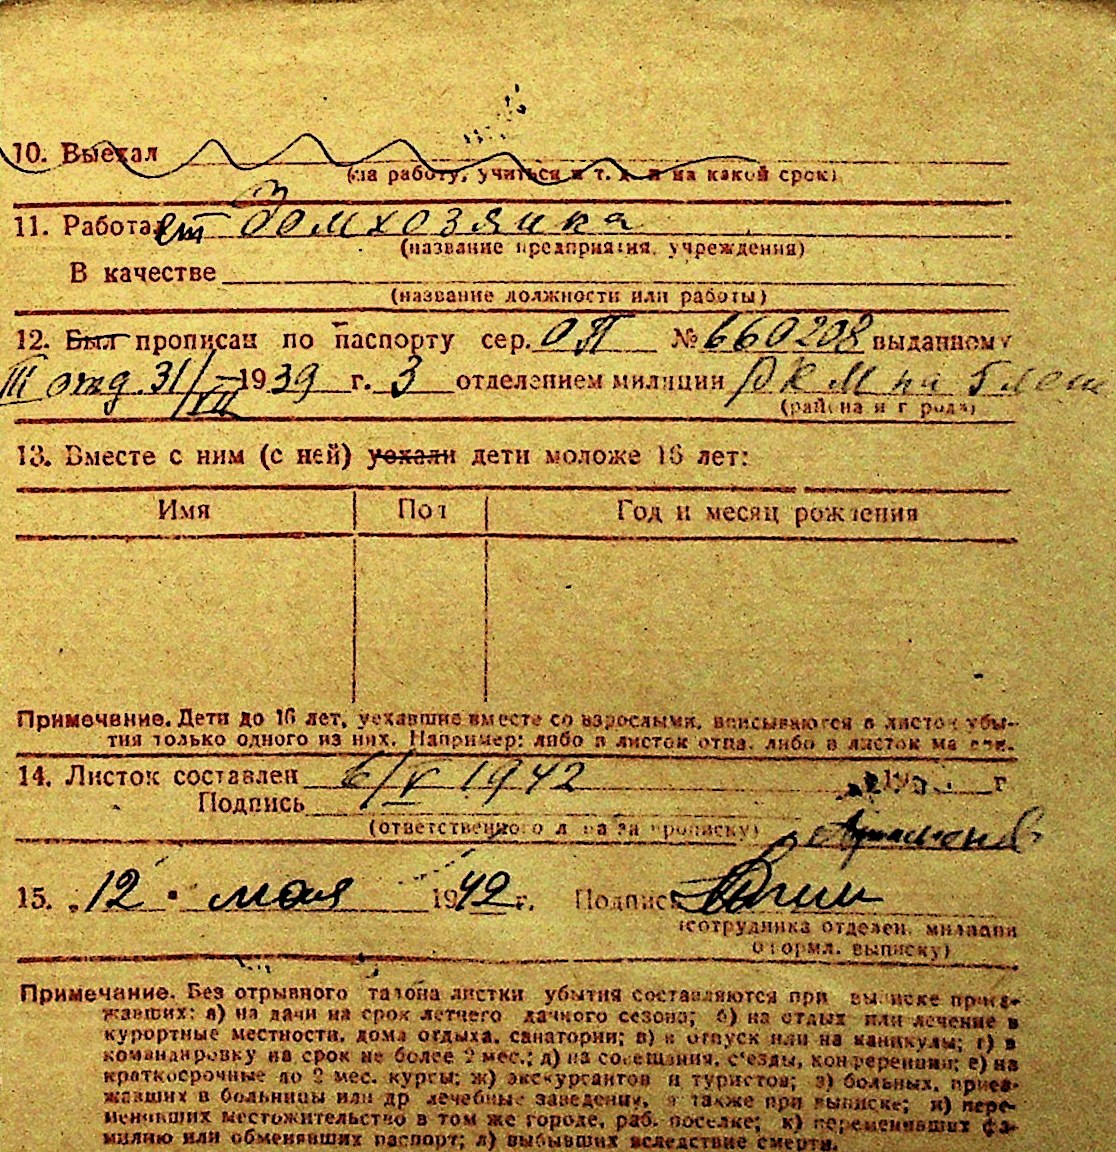 10. Выехал
(на работу, учиться и т. д. и на какой срок)
11. Работает Домхозяйка
(название предприятия, учреждения)
В качестве
(название должности или работы)
12. Был прописан по паспорту сер. ОП № 660208 выданному
III отд. 31/VII 1939 г. 3 отделением милиции РКМ на
(района и города)
13. Вместе с ним (с ней) уехали дети моложе 16 лет:
Имя Пол Год и месяц рождения
Примечание. Дети до 16 лет, уехавшие вместе со взрослыми, вписываются в листок убы-
тия только одного из них. Например: либо в листок отца, либо в листок матери.
14. Листок составлен 6/V 1942 19 г
Подпись
(ответственного лица за прописку)
15. „12" мая 1942 г. Подпись
(сотрудника отделен. милиции
оформл. выписку)
Примечание. Без отрывного талона листки убытия составляются при выписке приез-
жавших: а) на дачи на срок летнего дачного сезона; б) на отдых или лечение в
курортные местности, дома отдыха, санатории; в) в отпуск или на каникулы; г) в
командировку на срок не более 2 мес.; д) на совещания, с'езды, конференции; е) на
краткосрочные до 2 мес. курсы; ж) экскурсантов и туристов; з) больных, приез-
жавших в больницы или др лечебные заведения, а также при выписке; и) пере-
менивших местожительство в том же городе, раб. поселке; к) переменивших фа-
милию или обменявших паспорт; л) выбывших вследствие смерти.